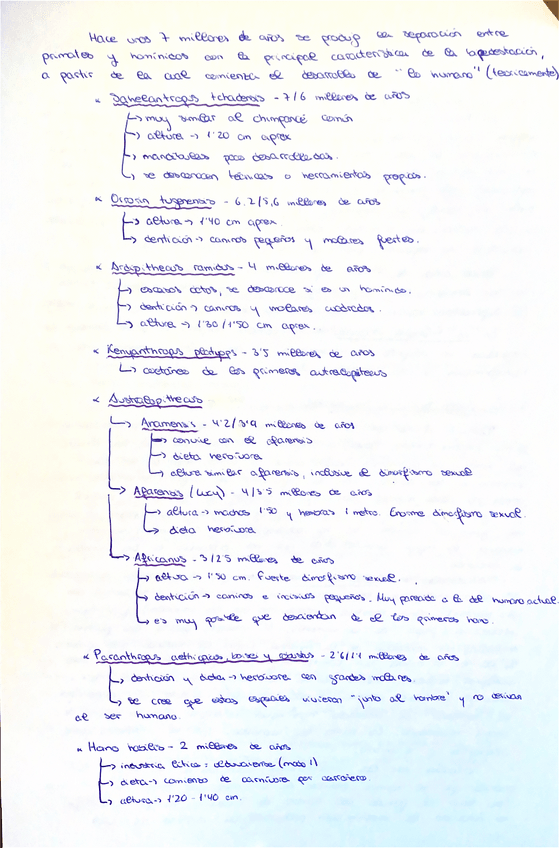 Hace unos 7 millones de años se produjo la separación entre
primates y homínidos con la principal característica de la bipedestación,
a partir de la cual comienza el desarrollo de "lo humano" (teóricamente)
* Sahelantrops tchadensis - 7/6 millones de años
↳ muy similar al chimpancé común
↳ altura → 1'20 cm aprox
↳ mandíbulas poco desarrolladas.
↳ se desconocen técnicas o herramientas propias.
* Orrorin tugenensis - 6.2/5,6 millones de años
↳ altura → 1'40 cm aprox.
↳ dentición → caninos pequeños y molares fuertes.
* Ardipithecus ramidus - 4 millones de años
↳ escasos datos, se desconoce si es un homínido.
↳ dentición → caninos y molares cuadrados.
↳ altura → 1'30/1'50 cm aprox.
* Kenyanthrops platyops - 3'5 millones de años
↳ coetáneo de los primeros australopitecus
* Australopithecus
↳ Anamensis - 4'2/3'9 millones de años
↳ convive con el afarensis
↳ dieta herbívora
↳ altura similar afarensis, inclusive el dimorfismo sexual
↳ Afarensis (Lucy) - 4/3'5 millones de años
↳ altura → machos 1'50 y hembras 1 metro. Enorme dimorfismo sexual.
↳ dieta herbívora
↳ Africanus - 3/2'5 millones de años
↳ altura → 1'50 cm. Fuerte dimorfismo sexual.
↳ dentición → caninos e incisivos pequeños. Muy parecida a la del humano actual.
↳ es muy posible que desciendan de él los primeros homo.
* Paranthrops aethiopicus, boisei y robustus - 2'6/1'1 millones de años
↳ dentición y dieta → herbívora con grandes molares.
↳ se cree que estas especies vivieron "junto al hombre" y no derivan
al ser humano.
* Homo habilis - 2 millones de años
↳ industria lítica: olduvaiense (modo 1)
↳ dieta → comienzo de carnívora por carroñero.
↳ altura → 1'20 - 1'40 cm.